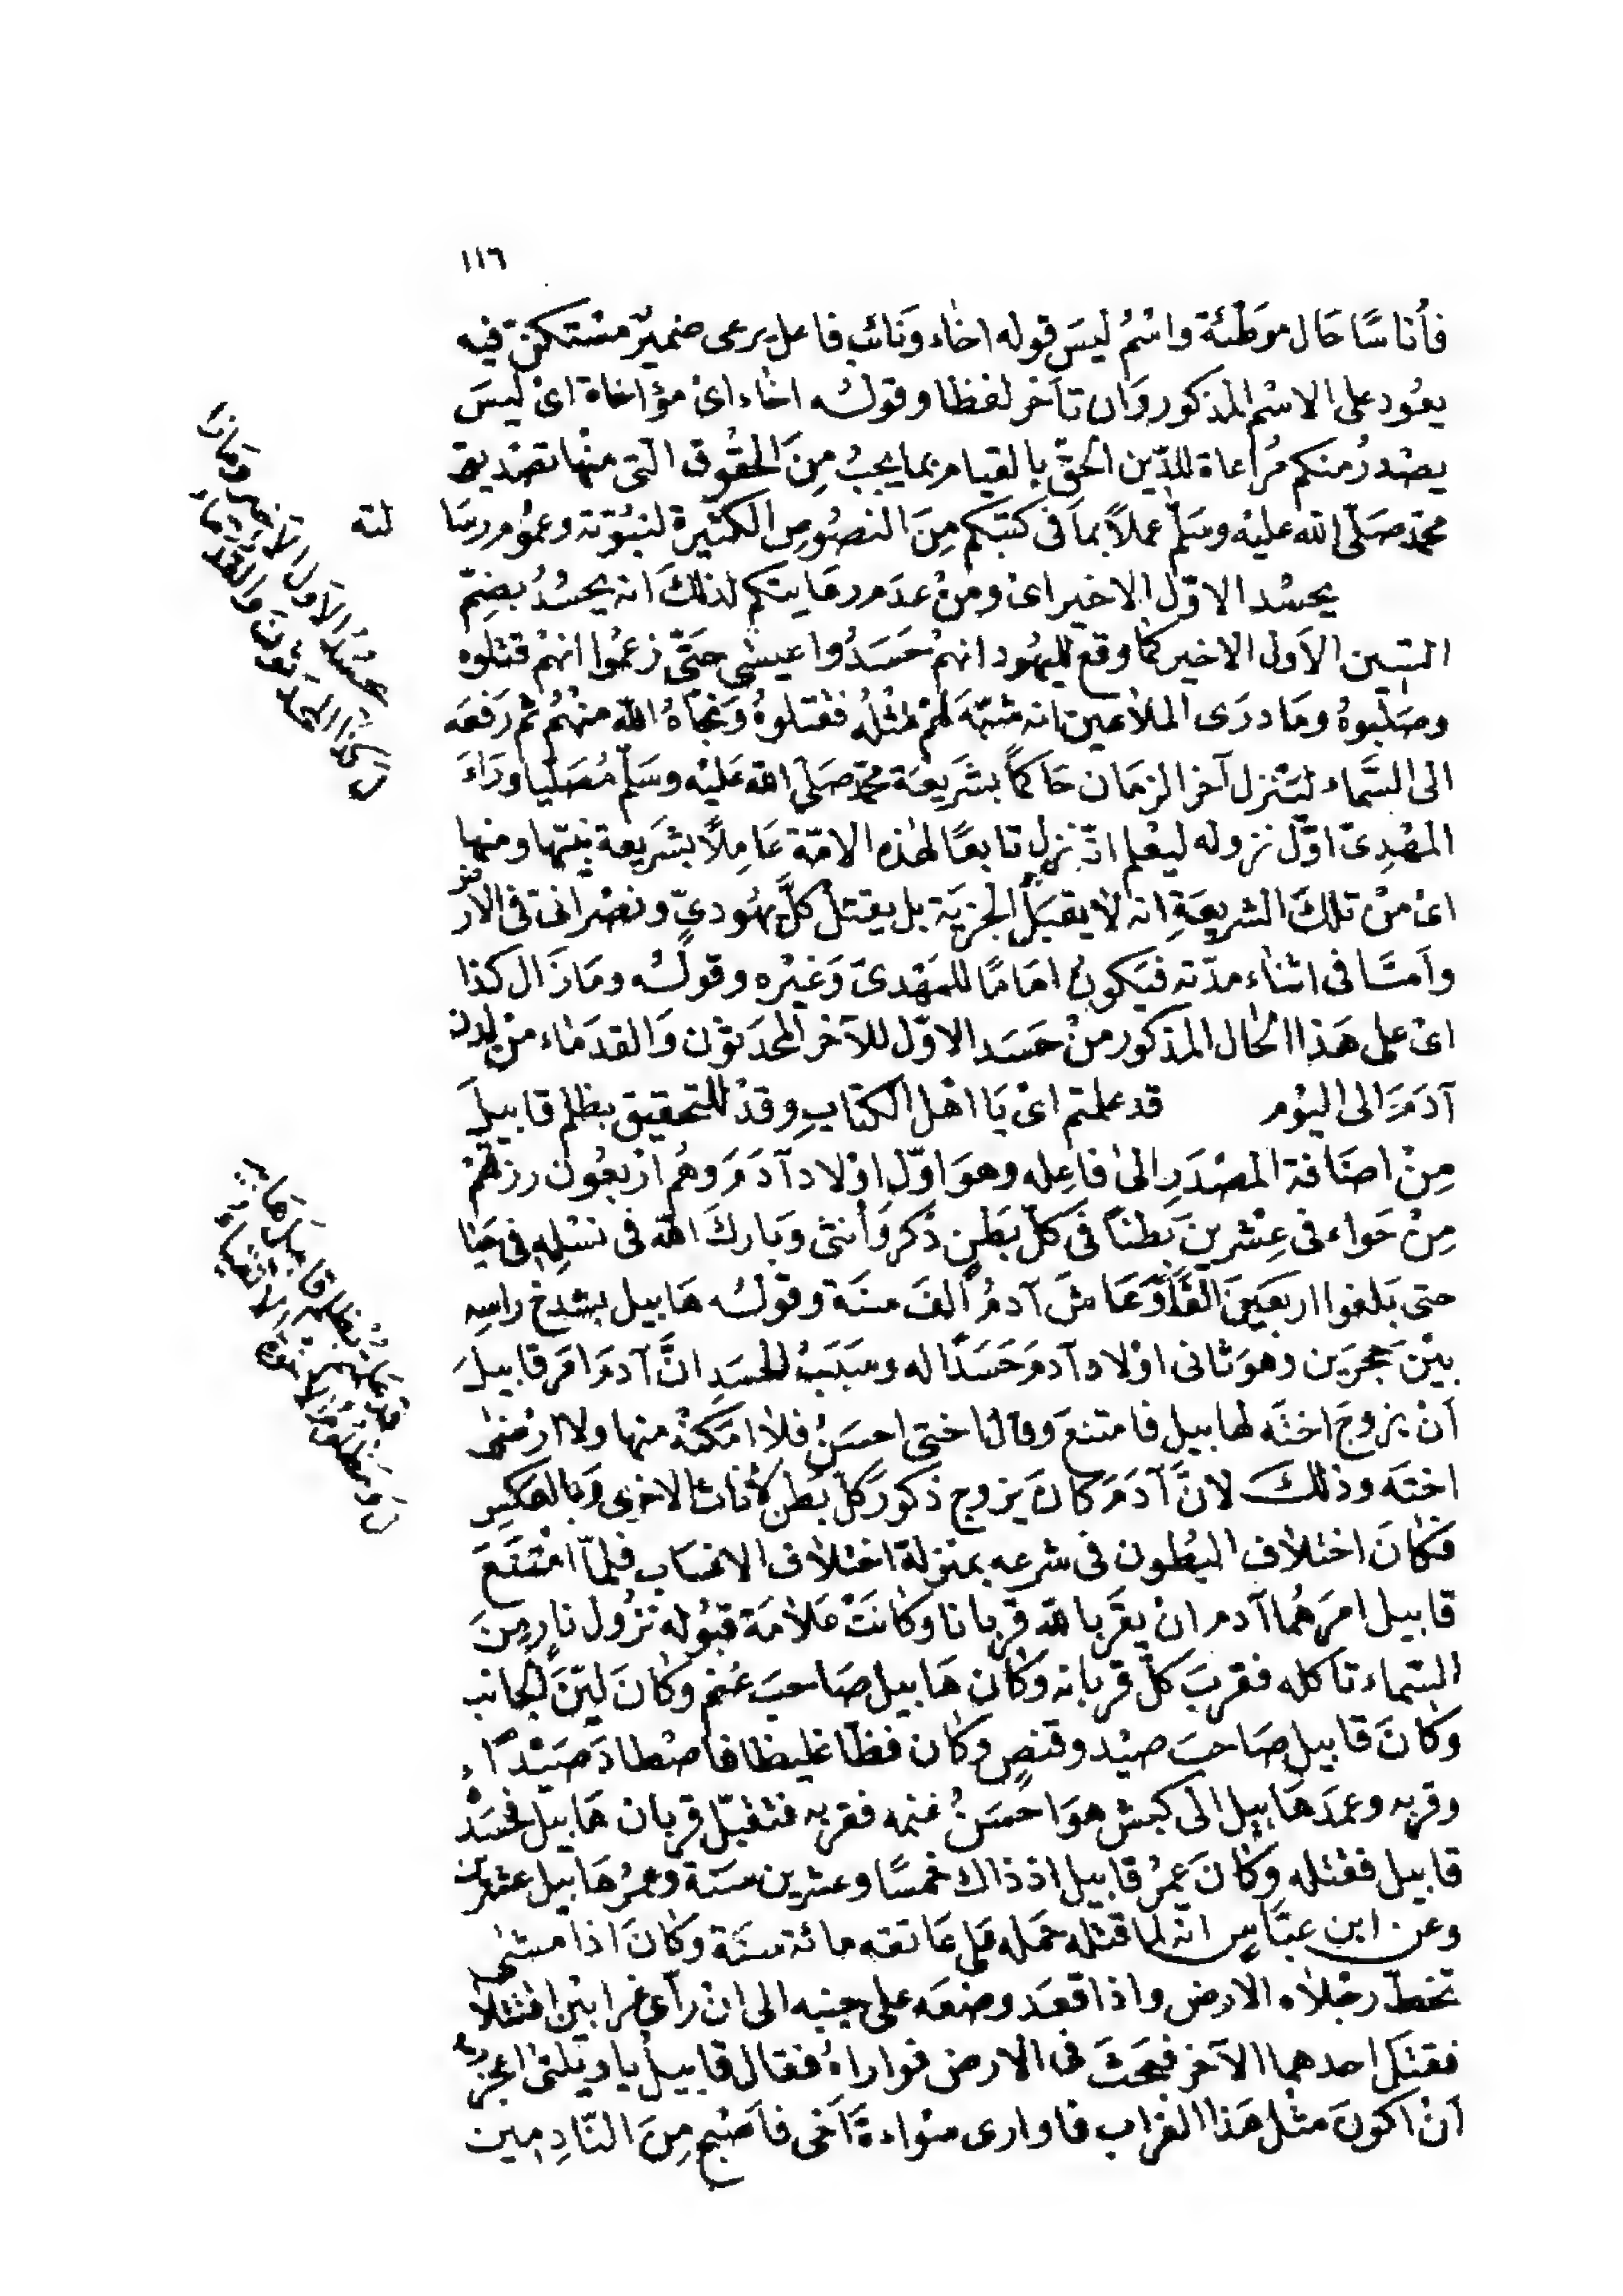 ١١٦
فأناسًا حَال موَطّئة واسْمُ ليسَ قوله اخاء ونائب فاعل يرعى ضميرٌ مسْتكنّ فيه
يعُود على الاسْم المذكور وَان تأخر لفظا وقولُه اخاء اىْ مؤاخاة اىْ ليسَ
يصْدرُ منكم مُراعاة للدّين الحقّ بالقيام بما يجبُ مِنَ الحقُوق التى منْها تصْديق
محمّد صَلّى الله عليْه وسَلّم عملاً بماَ فى كتبكم مِنَ النصُوص الكثيرة لنبُوّته وعمُوم رسَا
لته
يحسُد الاوّل الاخير اىْ ومنْ عدَم رعَايتكم لذلكَ انه يحسُدُ بضمّ
السّين الاَول الاخير كمَا وقع لليهُود انهمْ حَسَدُوا عيسى حَتّى زعمُوا انهمْ قتلوه
وصَلبوهُ ومَا درَى الملاعين انه شبّهَ لهمْ مثلُه فقتلوهُ وَنجّاهُ الله منهُمْ ثم رَفعَه
الى السَّماء ليَنْزل آخر الزمَان حَاكمًا بشَريعَة محمّد صَلى الله عَليْه وسَلم مُصَليا ورَاءَ
المهْدِىّ اوّل نزوله ليعْلم انّه نزل تابعًا لهذه الامّة عَامِلاً بشَريعة نبيّها ومنها
اىْ منْ تلكَ الشريعَةِ انه لا يقبَل الجزيَة بل يقتل كلَّ يهُودىّ ونصْرانىّ فى الارض
واَمّا فى اثناء مدّته فيَكون امَامًا للمَهْدىّ وَغيْره وقولُه ومَا زَال كذا
اىْ على هَذا الحَال المذكور منْ حسَد الاوّل للآخر المحدَثوْن وَالقدمَاء منْ لدن
آدَمَ الى اليوْم قد علمتم اىْ يَا اهْل الكتابِ وقدْ للتحقيق بظلم قابيلَ
مِنْ اضَافة المصْدَرِ الىٰ فاعِله وهوَ اوّل اوْلاد آدَمَ وَهُم ارْبعُون رزقهُمْ
مِنْ حَواء فى عِشْرينَ بَطنًا فى كلّ بَطنٍ ذكر وَاُنثى وَبَاركَ الله فى نسْلِه فى حَيَا
حتى بَلغوا اربعَينَ الفًا وَعَاشَ آدمُ الفَ سنَة وقوْلُه هَابيل بشدْخ راسِه
بيْنَ حجرَين وهوَ ثانى اوْلاد آدمَ حَسَدًا له وسَبَبُ الحسَدِ انَّ آدمَ امَر قابيلَ
اَنْ يزوجَ اخته لهابيل فامتنعَ وقال اختى احسَنُ فلا امَكّنهُ منها ولا ارْضىٰ
اختَه وذلك لانَّ آدَمَ كانَ يزوج ذكورَ كلّ بطن لاناث الاخرى وَبالعكسِ
فكانَ اختلاف البُطون فى شرعه بمنزلة اختلاف الانسَاب فلمّا امْتنَعَ
قابيل امرَهُما آدم انْ يقرّبا لله قربانا وكانَتْ عَلامَة قبُوله نزُول نارٍ مِنَ
السّماء تاكله فقربَ كلّ قربانه وَكان هَابيل صَاحبَ غنم وَكانَ ليّنَ الجانب
وَكانَ قابيل صَاحبَ صيْد وقنصٍ وَكان فظّا غليظا فاصْطادَ صَيْدًا
وقربه وعمدَ هَابيل الى كبش هوَ احْسَنُ غنمه فقربه فتقبّل قربان هَابيل فحسَدْ
قابيل فقتله وَكانَ عمرُ قابيل اذ ذاك خمسًا وعشرين سنَة وعمرُ هَابيل عشرين
وعن ابن عبّاسٍ انّه لما قتله حمَله عَلى عَاتقه مائة سنَة وَكانَ اذا مشىٰ
تخطّ رجْلاه الارض واذا قعَد وضعَه على جنبه الى انْ رَأى غرابيْن اقتتلا
فقتل احدهما الآخر فبحَثَ فى الارض فواراهُ فقال قابيل يا ويْلتىٰ اعجزت
اَنْ اكونَ مثلَ هَذا الغراب فاوارى سَواءةَ اَخى فاَصْبح مِنَ النّادِمِين
حسَدُ الاَول الاَخير ومَازَا
لَ كذا المحْدَثونَ والقدمَاءُ
قدْ علمتم بظلم قابيل هَابيـ
لَ ومَظلُومُ الاخوةِ الاَتقياءُ